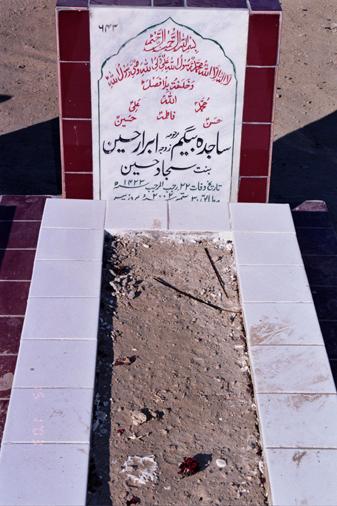 ۶۴۳
بسم اللہ الرحمٰن الرحیم
لا الہ الا اللہ محمد رسول اللہ علی ولی اللہ وصی رسول اللہ
وخلیفتہ بلا فصل
اللہ
محمد علی
فاطمہ
حسن حسین
ساجدہ بیگم مرحومہ زوجہ ابرار حسین
بنت سجاد حسین
تاریخ وفات ۲۲ رجب المرجب ۱۴۲۳ھ
مطابق ۳۰ ستمبر ۲۰۰۲ء بروز پیر